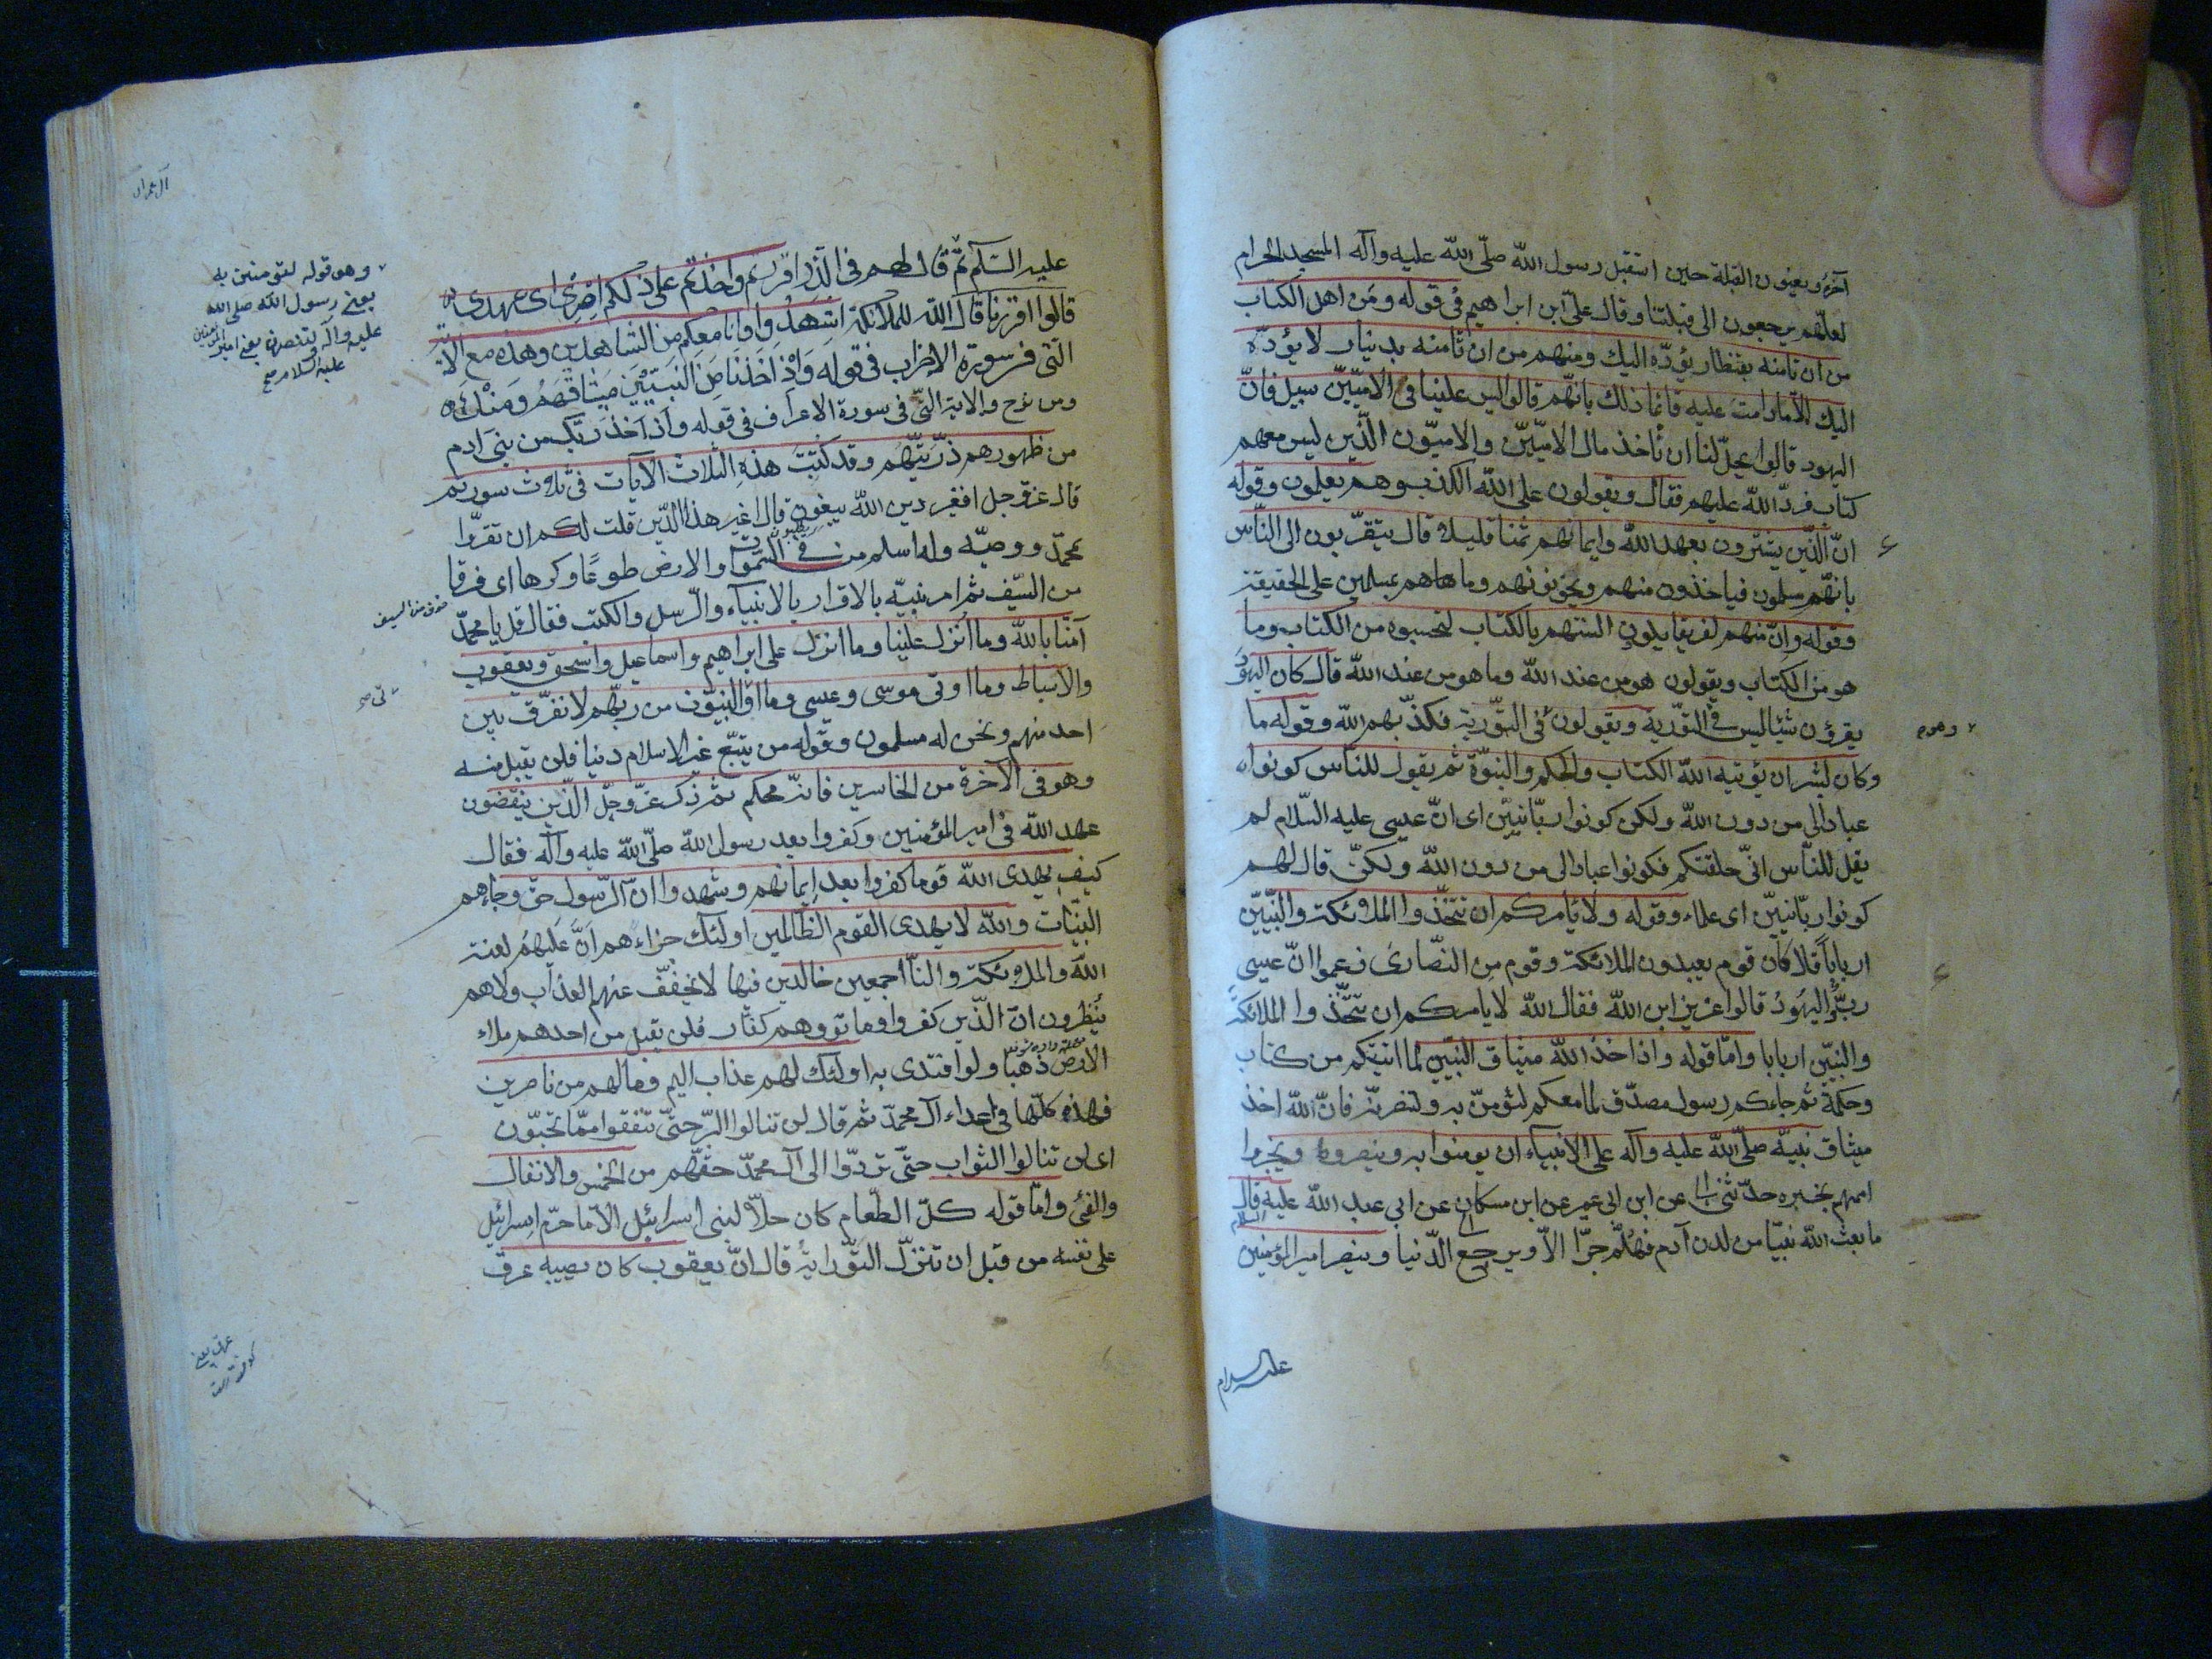 آخره ويعنون القبلة حين استقبل رسول الله صلّى الله عليه وآله المسجد الحرام
لعلّهم يرجعون الى قبلتنا وقال علىّ ابن ابراهيم فى قوله ومن اهل الكتاب
من ان تامنه بقنطار يؤدّه اليك ومنهم من ان تامنه بدينار لا يؤدّه
اليك الّا ما دامت عليه قائما ذلك بانّهم قالوا ليس علينا فى الاميّين سبيل فانّ
اليهود قالوا يحلّ لنا ان ناخذ مال الاميّين والاميّون الّذين ليس معهم
كتاب فردّ الله عليهم فقال ويقولون على الله الكذب وهم يعلمون وقوله
انّ الّذين يشترون بعهد الله وايمانهم ثمنا قليلا قال يتقرّبون الى النّاس
بانّهم مسلمون فياخذون منهم ويخونونهم وما هم بمسلمين على الحقيقة
وقوله وانّ منهم لفريقا يلون السنتهم بالكتاب لتحسبوه من الكتاب وما
هو من الكتاب ويقولون هو من عند الله وما هو من عند الله قال كان اليهود
يقرؤن شيئا ليس فى التّورية ويقولون فى التّورية فكذّبهم الله وقوله ما
وهو م
وكان لبشر ان يؤتيه الله الكتاب والحكم والنبوّة ثم يقول للنّاس كونوا
عبادا لى من دون الله ولكن كونوا ربّانيّين اى انّ عيسى عليه السّلام لم
يقل للنّاس انّى خلقتكم فكونوا عبادا لى من دون الله ولكنّ قال لهم
كونوا ربّانيّين اى علماء وقوله ولا يأمركم ان تتّخذوا الملائكة والنّبيّين
اربابا قال كان قوم يعبدون الملائكة وقوم من النّصارى زعموا انّ عيسى
ربّ واليهود قالوا عزير ابن الله فقال الله لا يامركم ان تتّخذوا الملائكة
والنبيّن اربابا وامّا قوله واذ اخذ الله ميثاق النبيّين لما اتيتكم من كتاب
وحكمة ثم جاءكم رسول مصدّق لما معكم لتؤمننّ به ولتنصرنّه فانّ الله اخذ
ميثاق نبيّه صلّى الله عليه وآله على الانبياء ان يومنوا به وينصروه ويخبروا
اممهم بخبره حدّثنى ابى عن ابن ابى عمير عن ابن مسكان عن ابى عبد الله عليه السلام قال
ما بعث الله نبيّا من لدن آدم فهلمّ جرّا الاّ ويرجع الى الدّنيا وينصر امير المؤمنين
عليه السلام
آل عمران
عليه السّلم ثمّ قال لهم فى الذّر ااقررتم واخذتم على ذلكم اصرى اى عهدى
قالوا اقررنا قال الله للملائكة اشهدوا وانا معكم من الشاهدين وهذه مع الاية
الّتى فى سورة الاحزاب فى قوله واذ اخذنا من النبيّين ميثاقهم ومنك
ومن نوح والاية الّتى فى سورة الاعراف فى قوله واذ اخذ ربّك من بنى ادم
من ظهورهم ذرّيّتهم وقد كتبت هذه الثّلاث الآيات فى ثلاث سور ثم
قال عزّ وجل افغير دين الله يبغون قال اغير هذا الّذين قلت لكم ان تقرّوا
بمحمّد ووصيّه وله اسلم من فى السّموات والارض طوعا وكرها اى فرقا
من السّيف ثم امر نبيّه بالاقرار بالانبياء والرّسل والكتب فقال قل يا محمّد
آمنّا بالله وما انزل علينا وما انزل على ابراهيم واسماعيل واسحق ويعقوب
والاسباط وما اوتى موسى وعيسى وما اوتى النبيّون من ربّهم لا نفرّق بين
احد منهم ونحن له مسلمون وقوله من يتبّع غير الاسلام دينا فلن يقبل منه
وهو فى الآخرة من الخاسرين فانّه محكم ثم ذكر عزّوجلّ الّذين ينقضون
عهد الله فى امير المؤمنين وكفروا بعد رسول الله صلّى الله عليه وآله فقال
كيف يهدى الله قوما كفروا بعد ايمانهم وشهدوا انّ الرّسول حق وجاءهم
البيّنات والله لا يهدى القوم الظّالمين اولئك جزاءهم انّ عليهم لعنة
الله والملائكة والنّاس اجمعين خالدين فيها لا يخفّف عنهم العذاب ولا هم
ينظرون انّ الّذين كفروا وماتوا وهم كفّار فلن تقبل من احدهم ملاء
الارض ذهبا ولو افتدى به اولئك لهم عذاب اليم وما لهم من ناصرين
فهذه كلّها فى اعداء آل محمّد ثم قال لن تنالوا البرّ حتىّ تنفقوا ممّا تحبّون
اى لن تنالوا الثواب حتىّ تردّوا الى آل محمّد حقّهم من الخمس والانفال
والفئ وامّا قوله كلّ الطّعام كان حلاّ لبنى اسرائيل الّا ما حرّم اسرائيل
على نفسه من قبل ان تنزّل التّوراية قال انّ يعقوب كان يصيبه عرق
وهو قوله لتومنن به
يعنى رسول الله صلى الله
عليه وآله ولتنصرنه يعنى امير المؤمنين
عليه السلام صح